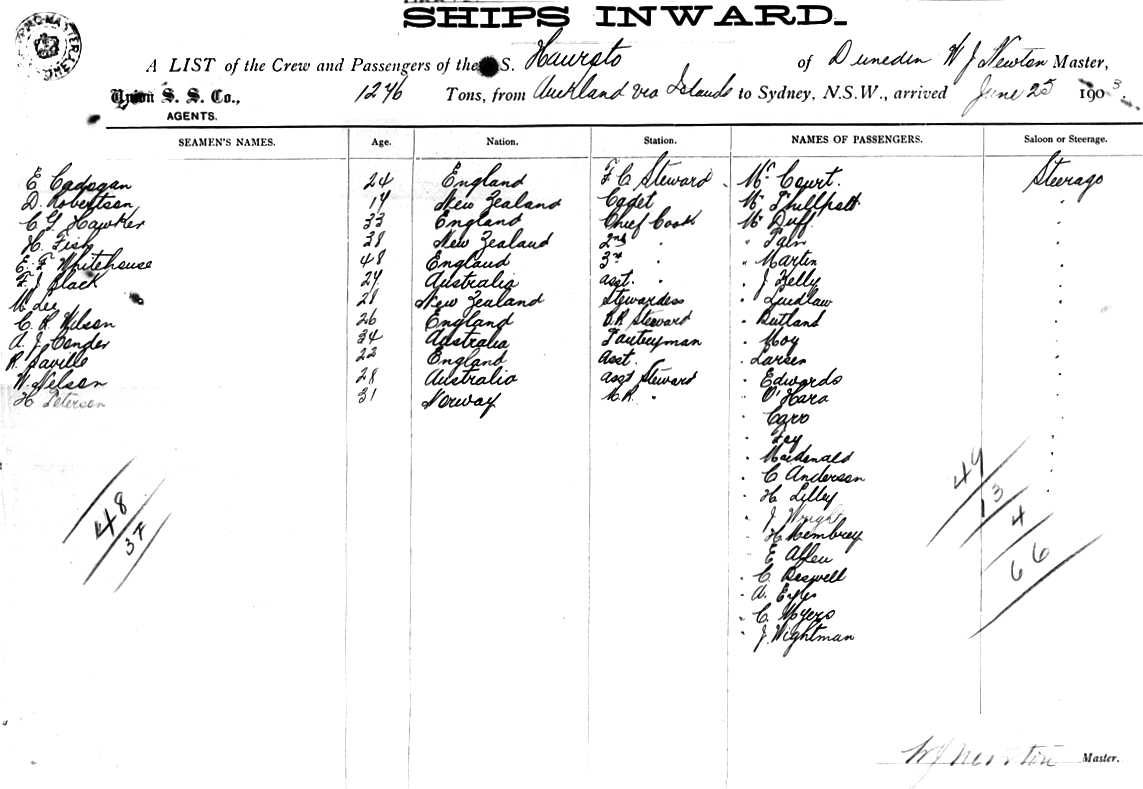 SHIPS INWARD.
A LIST of the Crew and Passengers of the S. S. of Dunedin W J Newton Master,
Union S. S. Co., 1246 Tons, from Auckland via Islands to Sydney, N.S.W., arrived June 25 1903.
AGENTS.
SEAMEN'S NAMES. Age. Nation. Station. NAMES OF PASSENGERS. Saloon or Steerage.
E Cadogan 24 England F C Steward Mr Court. Steerage
D. Robertson 19 New Zealand Cadet Mr Phillpott "
C G Hawker 33 England Chief Cook Mr Duff "
H. Fish 38 New Zealand 2nd " " "
E. F Whitehouse 48 England 3rd " " Martin "
F J Black Australia asst. " " J Kelly "
M Lee 28 New Zealand Stewardess " Laidlaw "
C. R Wilson 26 England B.R. Steward " Rutland "
A. J. Conder 34 Australia Pantryman " Moy "
R. Saville 22 England asst. " Larsen "
W. Nelson 28 Australia asst Steward " Edwards "
H Peterson 31 Norway " " O'Hara "
" Caro "
" Fay "
" Macdonald "
" C Anderson "
" H Lilley "
" J Wright
" H Membrey
E Allen
" C Boswell
" A. Eyles
" C Moyers
" J. Wightman
48
37
49
13
4
66
W J Newton Master.